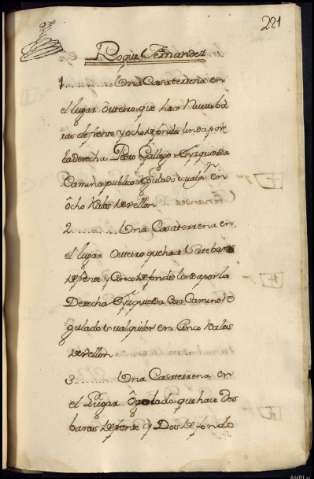 221
Roque Fernandez
1 Una Casa terrena en
el lugar Outeiro que hace Nueve ba
ras de frente y ocho de fondo linda por
la derecha Pedro Gallego Izquierda
Camino publico
ocho Reales de vellon
2 Una Casa terrena en
el lugar Outeiro que hace baras
de frente y Cinco de fondo linda por la
Derecha Izquierda Con Camino
su alquiler en Cinco Reales
de vellon
3 Una Casa terrena en
el Lugar que hace Dos
baras de frente y Dos de fondo